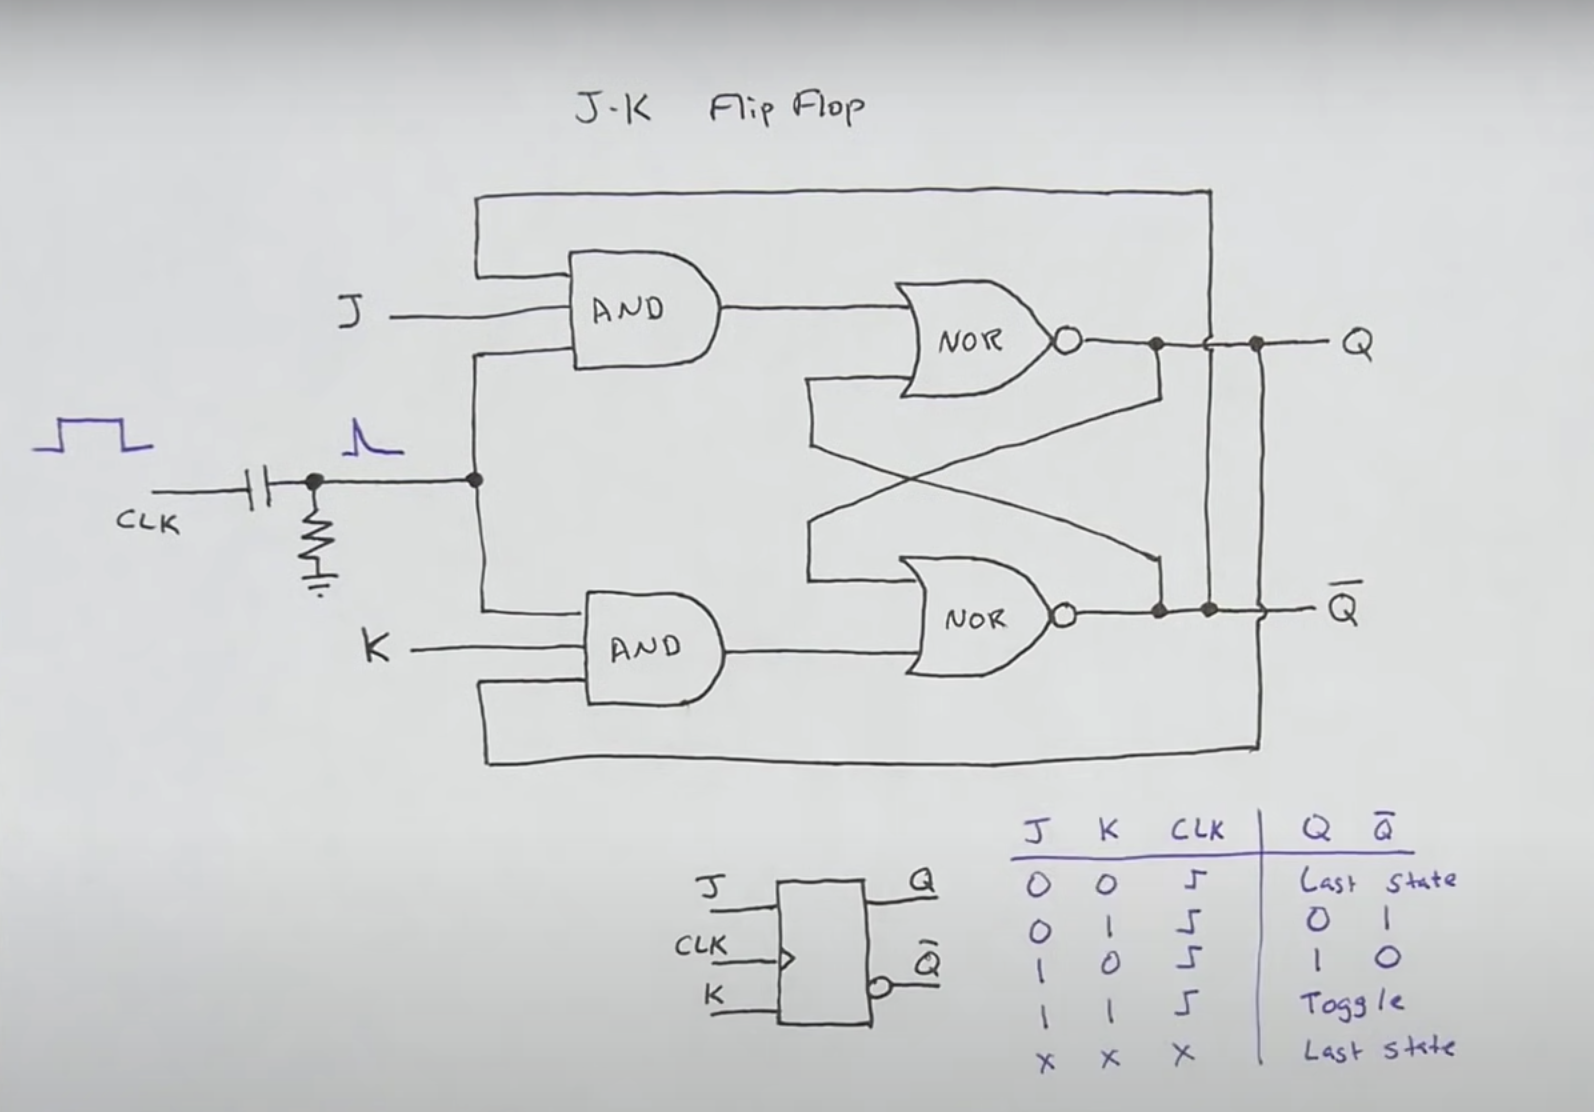 J-K Flip Flop
J
AND
NOR
Q
CLK
K
AND
NOR
Q̅
J
CLK
K
Q
Q̅
J K CLK Q Q̅
0 0 Last state
0 1 0 1
1 0 1 0
1 1 Toggle
x x x Last state